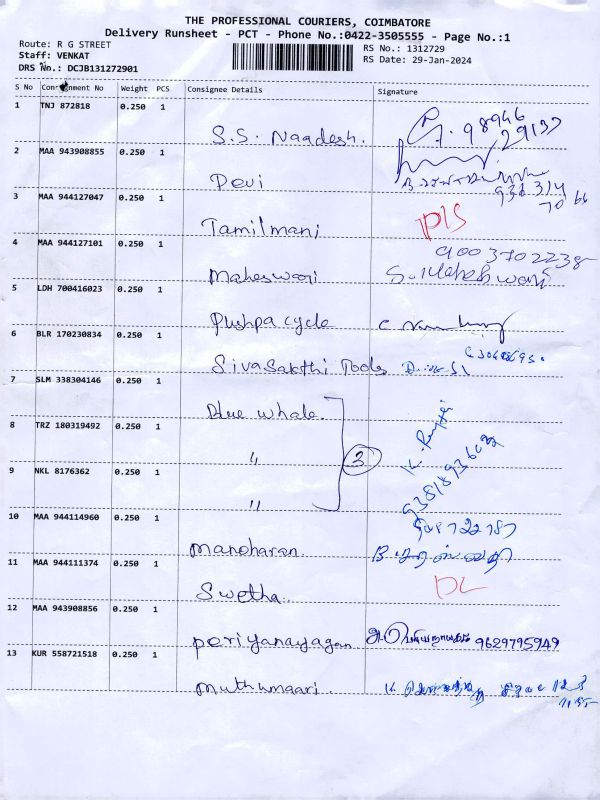 THE PROFESSIONAL COURIERS, COIMBATORE
Delivery Runsheet - PCT - Phone No.:0422-3505555 - Page No.:1
Route: R G STREET
RS No.: 1312729
Staff: VENKAT
RS Date: 29-Jan-2024
DRS No.: DCJB131272901
S No Consignment No Weight PCS Consignee Details Signature
1 TNJ 872818 0.250 1
S.S. Naadesh. 98946
29137
2 MAA 943908855 0.250 1
Devi
3 MAA 944127047 0.250 1
Tamilmani
4 MAA 944127101 0.250 1
9003702238
Maheswari S. Maheshwari
5 LDH 700416023 0.250 1
Pushpa cycle
6 BLR 170230834 0.250 1
Sivasakthi Tools
7 SLM 338304146 0.250 1
Blue whale.
8 TRZ 180319492 0.250 1
" 3
9 NKL 8176362 0.250 1
"
10 MAA 944114960 0.250 1
Manoharan
11 MAA 944111374 0.250 1
Swetha. DL
12 MAA 943908856 0.250 1
Periyanayagan 9629795949
13 KUR 558721518 0.250 1
Muthumaari.